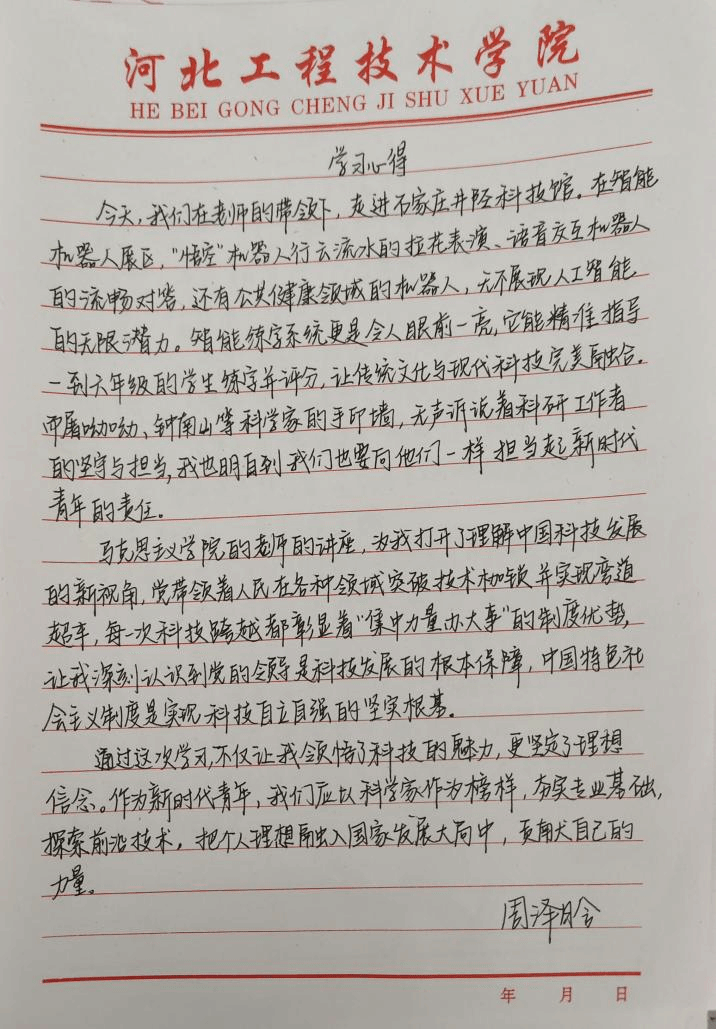 河北工程技术学院
HE BEI GONG CHENG JI SHU XUE YUAN
学习心得
今天，我们在老师的带领下，走进石家庄井陉科技馆。在智能
机器人展区，“悟空”机器人行云流水的拉花表演、语音交互机器人
的流畅对答，还有公共健康领域的机器人，无不展现人工智能
的无限潜力。智能练字系统更是令人眼前一亮，它能精准指导
一到六年级的学生练字并评分，让传统文化与现代科技完美融合。
而屠呦呦、钟南山等科学家的手印墙，无声诉说着科研工作者
的坚守与担当，我也明白到我们也要向他们一样担当起新时代
青年的责任。
马克思主义学院的老师的讲座，为我打开了理解中国科技发展
的新视角，党带领着人民在各种领域突破技术枷锁并实现弯道
超车，每一次科技跨越都彰显着“集中力量办大事”的制度优势，
让我深刻认识到党的领导是科技发展的根本保障，中国特色社
会主义制度是实现科技自立自强的坚实根基。
通过这次学习，不仅让我领悟了科技的魅力，更坚定了理想
信念。作为新时代青年，我们应以科学家作为榜样，夯实专业基础，
探索前沿技术，把个人理想融入国家发展大局中，贡献自己的
力量。
周泽
年 月 日